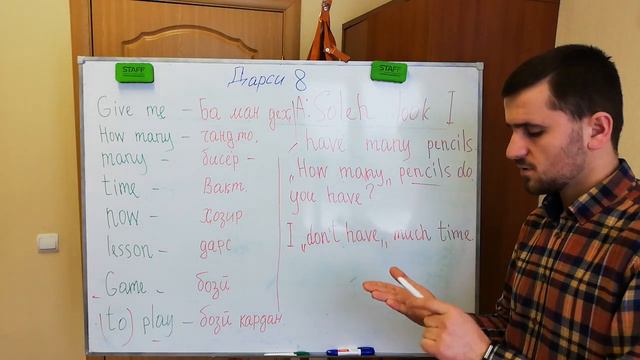 STAFF
STAFF
Дарси 8
Give me - Ба ман деҳ
How many - чандто,
many - бисёр -
time - Вақт.
now - Ҳозир
lesson - дарс
Game - бозӣ
(to) play - бозӣ кардан
A: Soleh look I
have many pencils.
"How many" pencils do
you have?
I "don't have" much time.